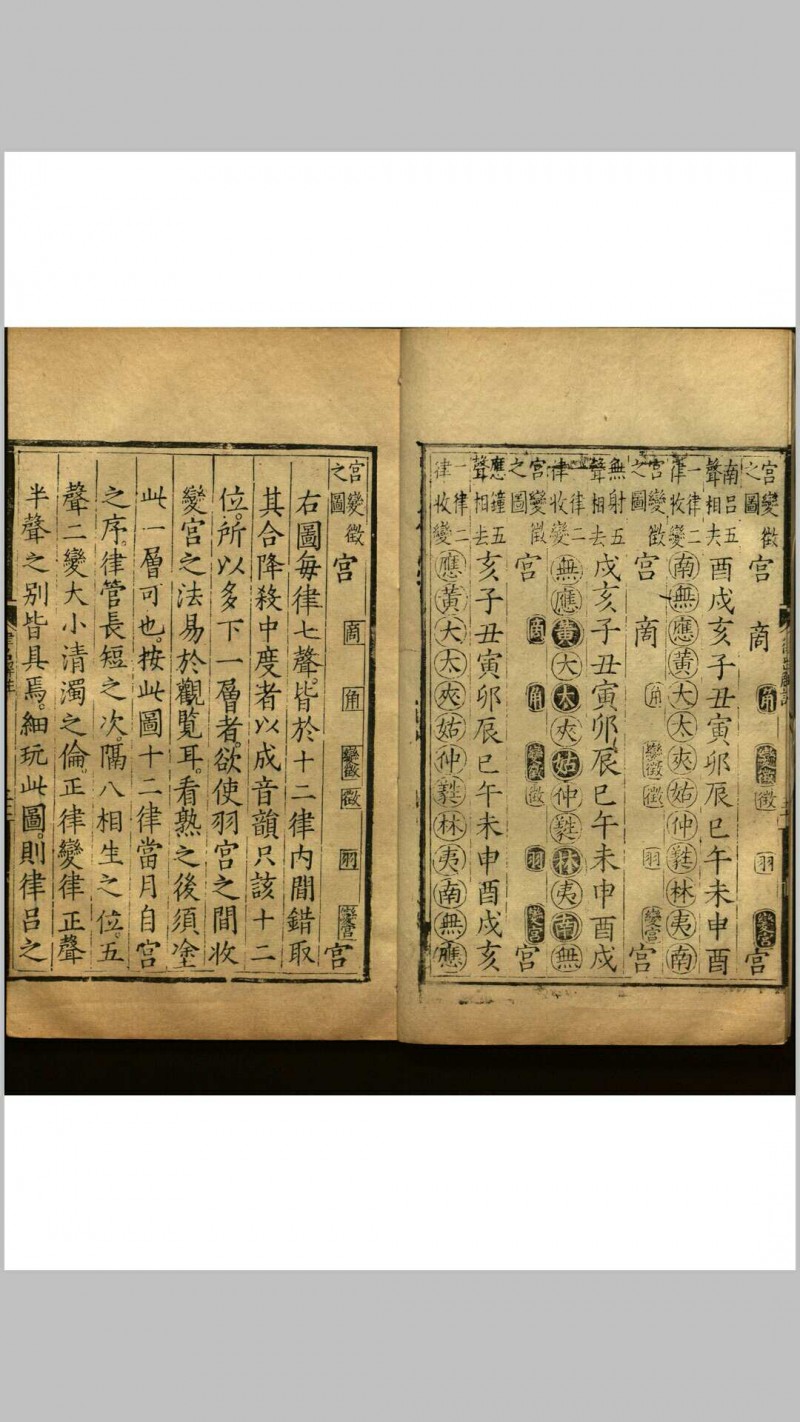 宮變徵之圖 宮 商 角 變徵 徵 羽 變宮 宮
南呂五聲相去 酉戌亥子丑寅卯辰巳午未申酉
一律二律收變 南無應黃大太夾姑仲蕤林夷南
宮變徵之圖 宮 商 角 變徵 徵 羽 變宮 宮
無射五聲相去 戌亥子丑寅卯辰巳午未申酉戌
一律二律收變 無應黃大太夾姑仲蕤林夷南無
宮變徵之圖 宮 商 角 變徵 徵 羽 變宮 宮
應鐘五聲相去 亥子丑寅卯辰巳午未申酉戌亥
一律二律收變 應黃大太夾姑仲蕤林夷南無應
宮變徵之圖 宮 商 角 變徵 徵 羽 變宮 宮
右圖每律七聲皆於十二律內間錯取
其合降殺中度者以成音韻只該十二
位。所以多下一層者。欲使羽宮之間收
變宮之法易於觀覽耳。看熟之後須塗
此一層可也。按此圖十二律當月自宮
之序。律管長短之次。隔八相生之位。五
聲二變大小清濁之倫。正律變律正聲
半聲之別皆具焉。細玩此圖。則律呂之